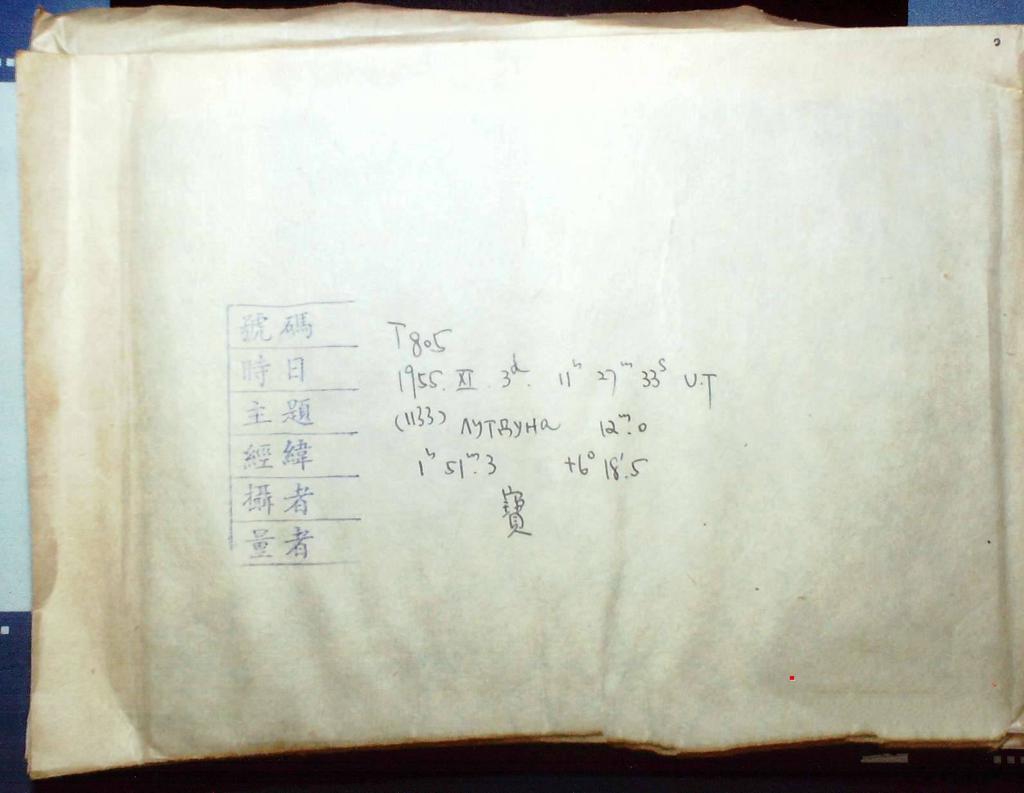 號碼 T805
時日 1955. XI. 3ᵈ. 11ʰ 27ᵐ 33ˢ U.T
主題 (1133) Лутдуна 12ᵐ.0
經緯 1ʰ 51ᵐ.3 +6° 18'.5
攝者 寶
量者